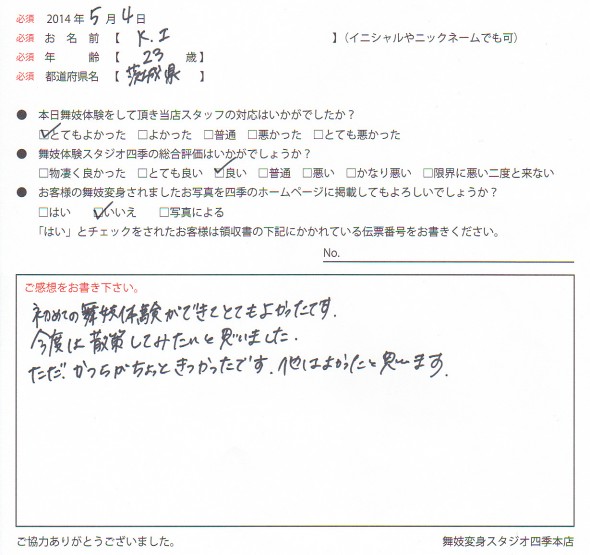 必須 2014年5月4日
必須 お名前【 K.I 】(イニシャルやニックネームでも可)
必須 年齢【 23 歳】
必須 都道府県名【 茨城県 】
● 本日舞妓体験をして頂き当店スタッフの対応はいかがでしたか?
☑とてもよかった □よかった □普通 □悪かった □とても悪かった
● 舞妓体験スタジオ四季の総合評価はいかがでしょうか?
□物凄く良かった □とても良い ☑良い □普通 □悪い □かなり悪い □限界に悪い二度と来ない
● お客様の舞妓変身されましたお写真を四季のホームページに掲載してもよろしいでしょうか?
□はい ☑いいえ □写真による
「はい」とチェックをされたお客様は領収書の下記にかかれている伝票番号をお書きください。
No.
ご感想をお書き下さい。
初めての舞妓体験ができてとてもよかったです.
今度は散策してみたいと思いました.
ただ.かつらがちょときつかったです.他はよかったと思います.
ご協力ありがとうございました。
舞妓変身スタジオ四季本店